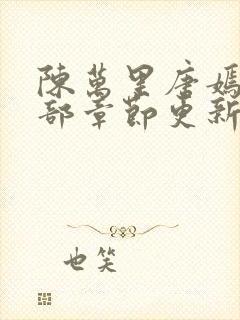 陳萬里唐嫣
部章節更新
也笑